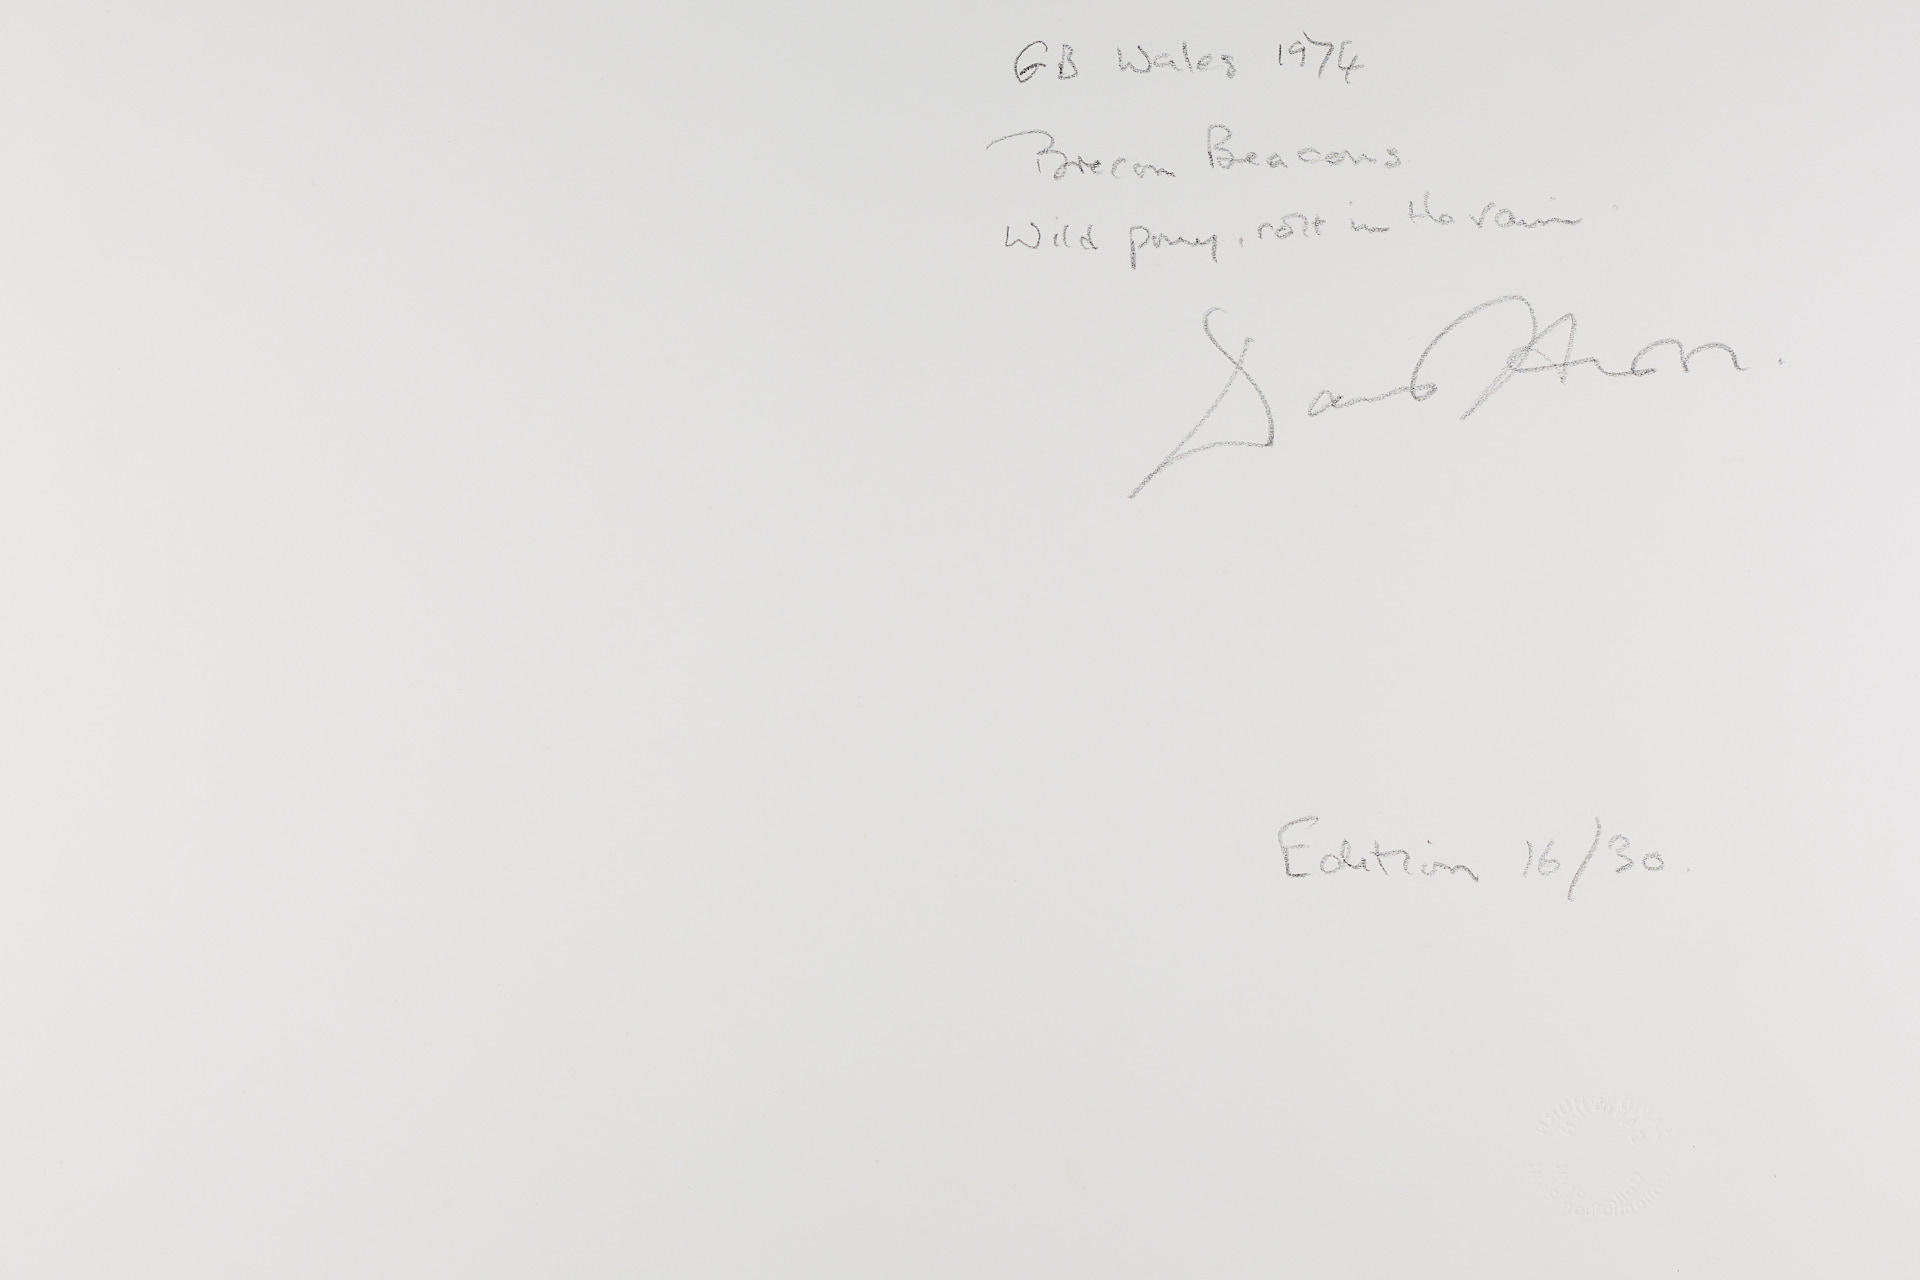 GB Wales 1974
Brecon Beacons
Wild pony, in the rain.
David Hurn.
Edition 16/30.